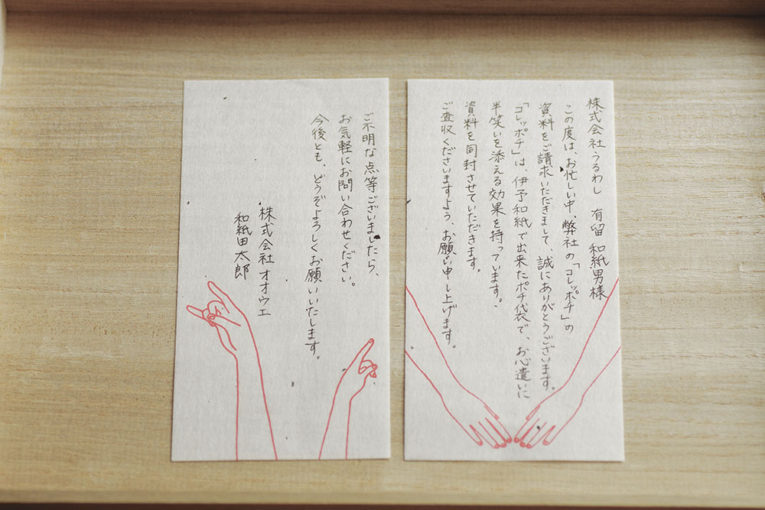 株式会社うるわし　有留 和紙男様
この度は、お忙しい中、弊社の「コレッポチ」の
資料をご請求いただきまして、誠にありがとうございます。
「コレッポチ」は、伊予和紙で出来たポチ袋で、お心遣いに
半笑いを添える効果を持っています。
資料を同封させていただきます。
ご査収くださいますよう、お願い申し上げます。
ご不明な点等ございましたら、
お気軽にお問い合わせください。
今後とも、どうぞよろしくお願いいたします。
株式会社オオウエ
和紙田太郎